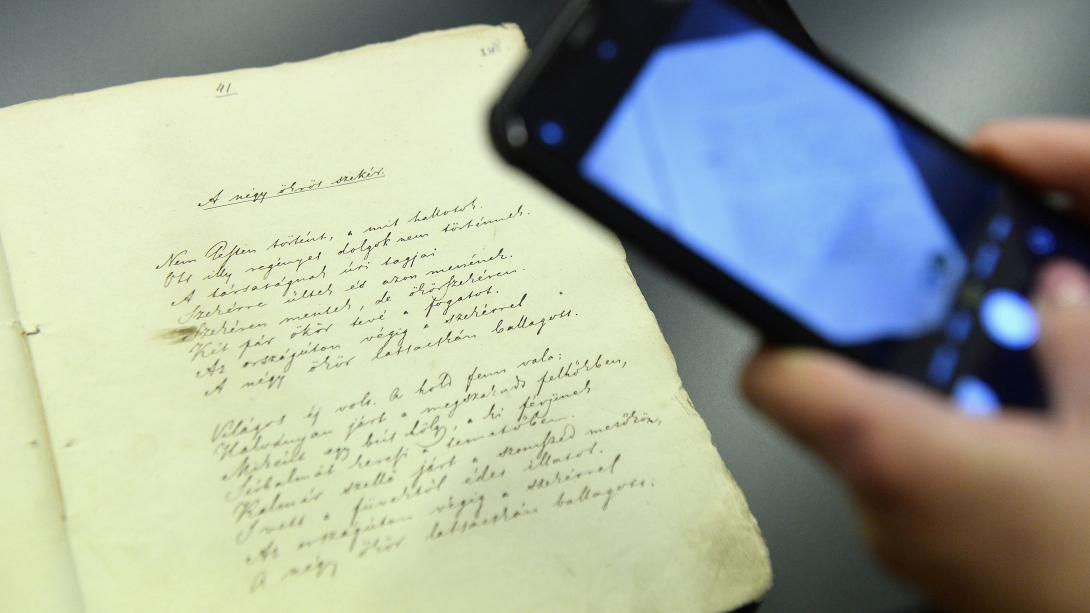 41
A négy ökrös szekér.
Nem Pesten történt, a mit hallotok.
Ott illy regényes dolgok nem történnek.
A társaságnak úri tagjai
Szekérre ültek és azon menének.
Szekéren mentek, de ökörszekéren.
Két pár ökör tevé a fogatot.
Az országúton végig a szekérrel
A négy ökör lassacskán ballagott.
Világos éj volt. A hold fenn vala;
Halványan járt a megszakadt felhőkben,
Miként egy bús hölgy, a ki férjének
Sirhalmát keresi a temetőben.
Kalmár szellő járt a szomszéd mezőkön,
S vett a füvektől édes illatot.
Az országúton végig a szekérrel
A négy ökör lassacskán ballagott.